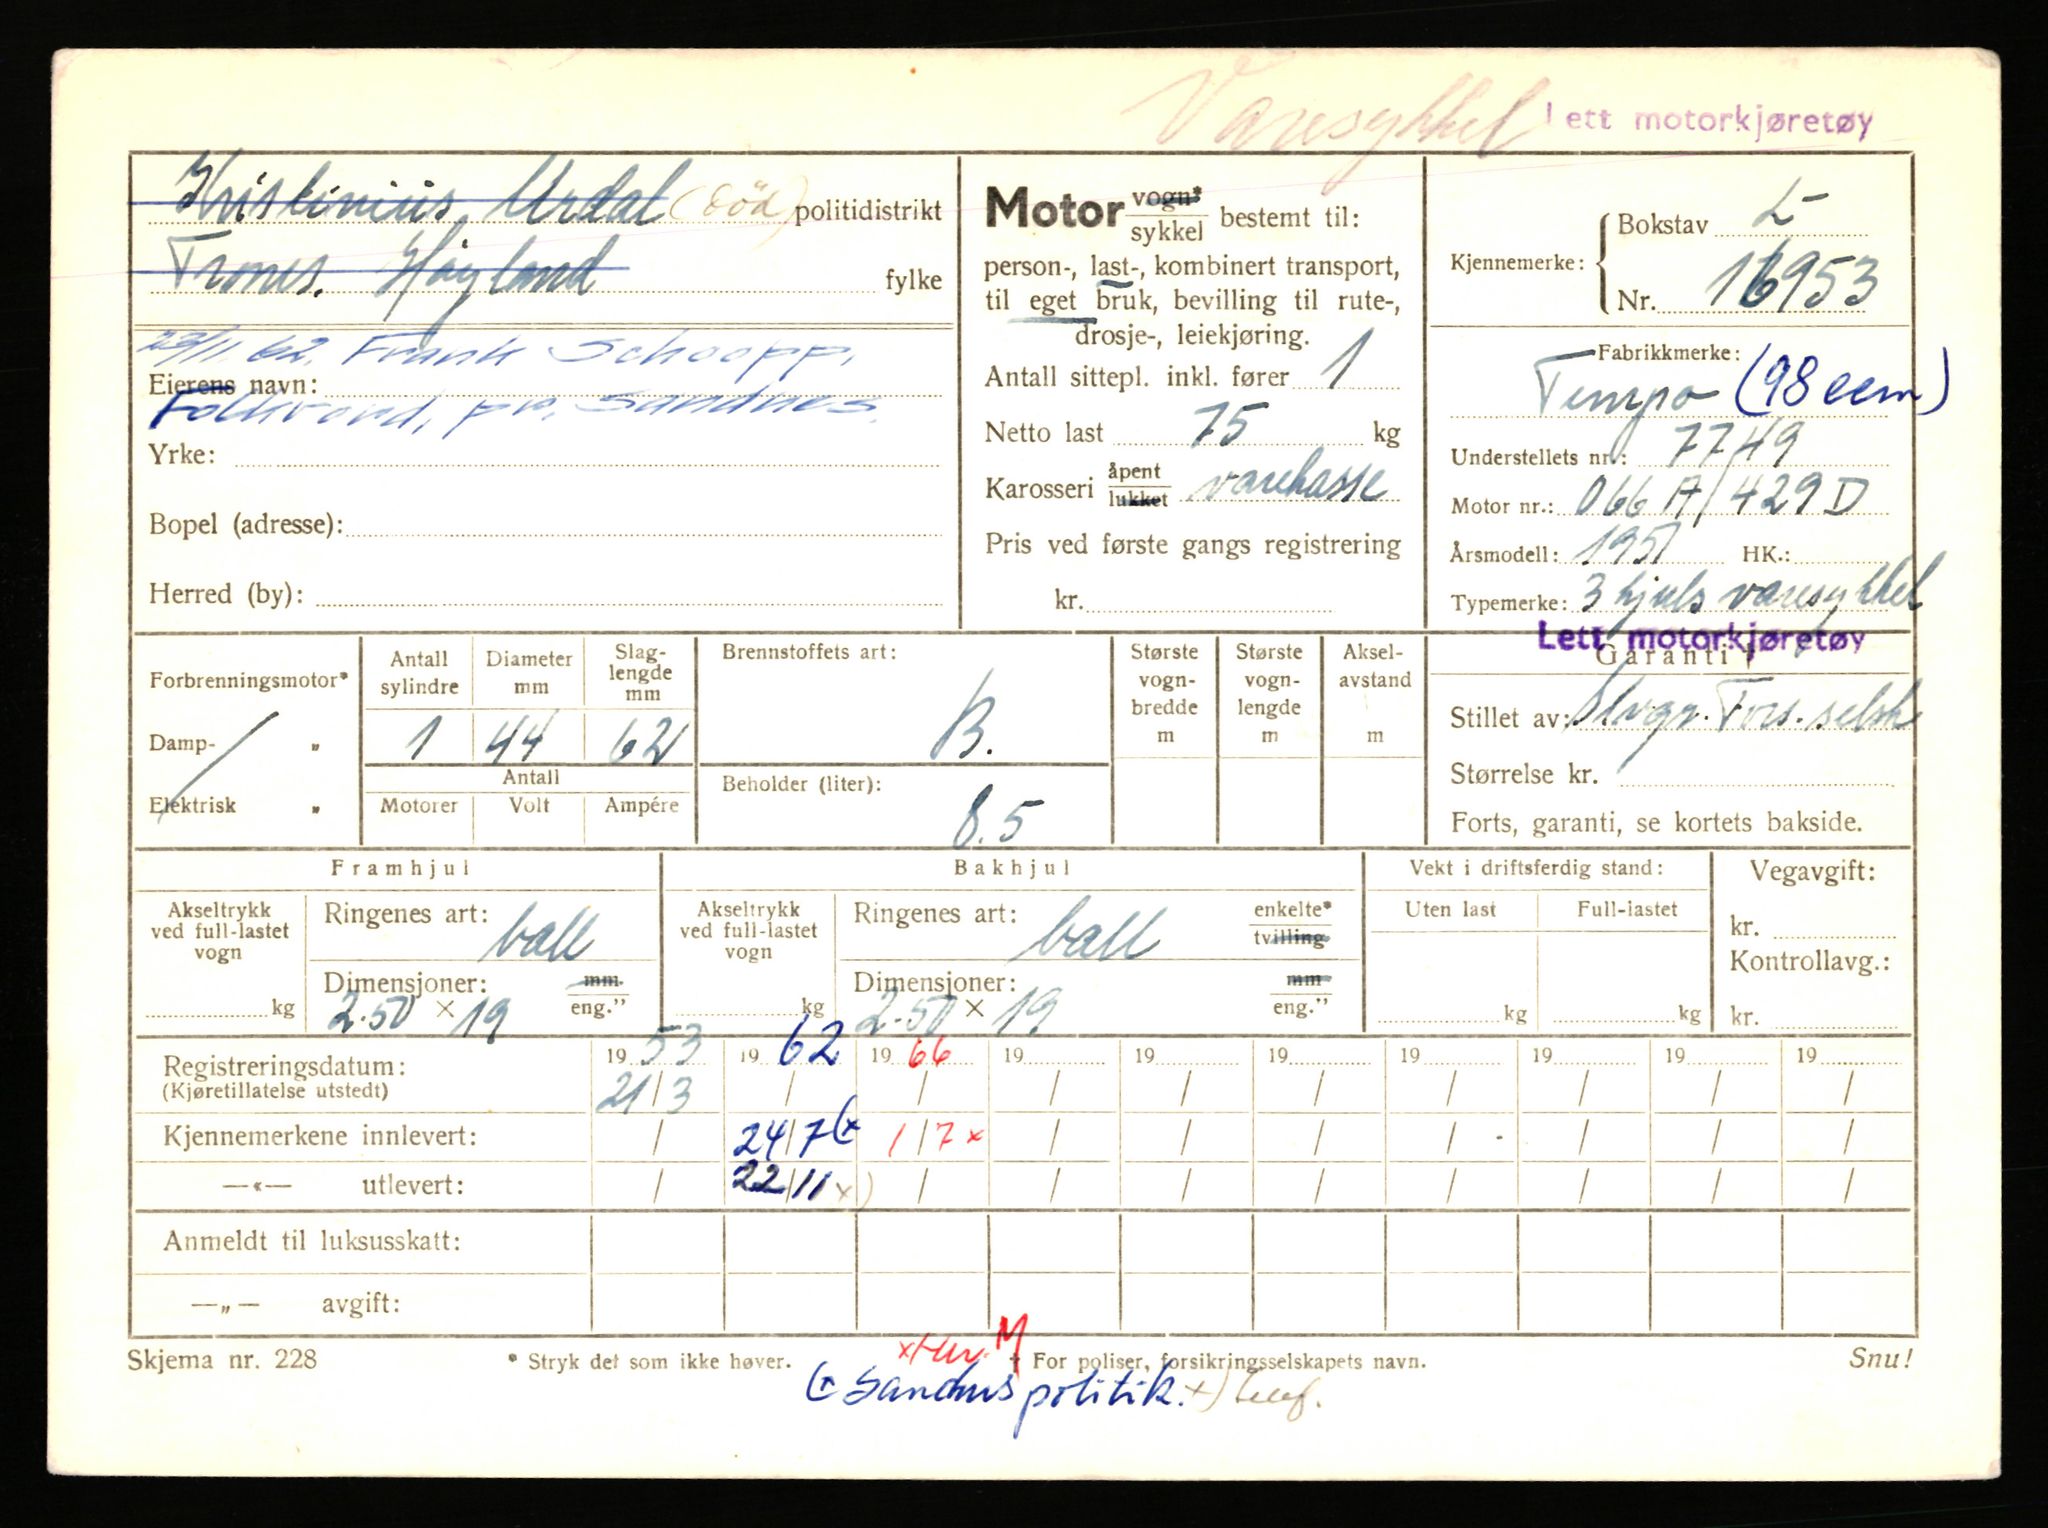 Varesykkel Lett motorkjøretøy
Kristinius Urdal (død) politidistrikt
Trones. Høyland fylke
23/11.62. Frank Schoopp,
Eierens navn:
Folkvord, pr. Sandnes.
Yrke:
Bopel (adresse):
Herred (by):
Motor vogn* / sykkel bestemt til:
person-, last-, kombinert transport,
til eget bruk, bevilling til rute-,
drosje-, leiekjøring.
Antall sittepl. inkl. fører 1
Netto last 75 kg
Karosseri åpent / lukket varekasse
Pris ved første gangs registrering
kr.
Kjennemerke: Bokstav L-
Nr. 16953
Fabrikkmerke:
Tempo (98 ccm)
Understellets nr.: 7749
Motor nr.: 066 A/429 D
Årsmodell: 1951 HK.:
Typemerke: 3 hjuls varesykkel
Lett motorkjøretøy
Garanti †
Stillet av: Fors. selsk
Størrelse kr.
Forts, garanti, se kortets bakside.
Forbrenningsmotor*
Damp- „
Elektrisk „
Antall sylindre Diameter mm Slag-lengde mm
1 44 62
Antall
Motorer Volt Ampére
Brennstoffets art:
B.
Beholder (liter):
8.5
Største vogn-bredde m
Største vogn-lengde m
Aksel-avstand m
Framhjul
Akseltrykk ved full-lastet vogn
kg
Ringenes art: ball
Dimensjoner: mm / eng."
2.50 × 19
Bakhjul
Akseltrykk ved full-lastet vogn
kg
Ringenes art: ball enkelte* / tvilling
Dimensjoner: mm / eng."
2.50 × 19
Vekt i driftsferdig stand:
Uten last Full-lastet
kg kg
Vegavgift:
kr.
Kontrollavg.:
kr.
Registreringsdatum: 19 53 19 62 19 66 19 19 19 19 19 19 19
(Kjøretillatelse utstedt) 21/3 / / / / / / / / /
Kjennemerkene innlevert: / 24/7 (x 1/7 x / / / / / / /
—«— utlevert: / 22/11 x) / / / / / / / /
Anmeldt til luksusskatt:
—„— avgift:
Skjema nr. 228 * Stryk det som ikke høver. † For poliser, forsikringsselskapets navn. Snu!
(x Sandnes politik. x)